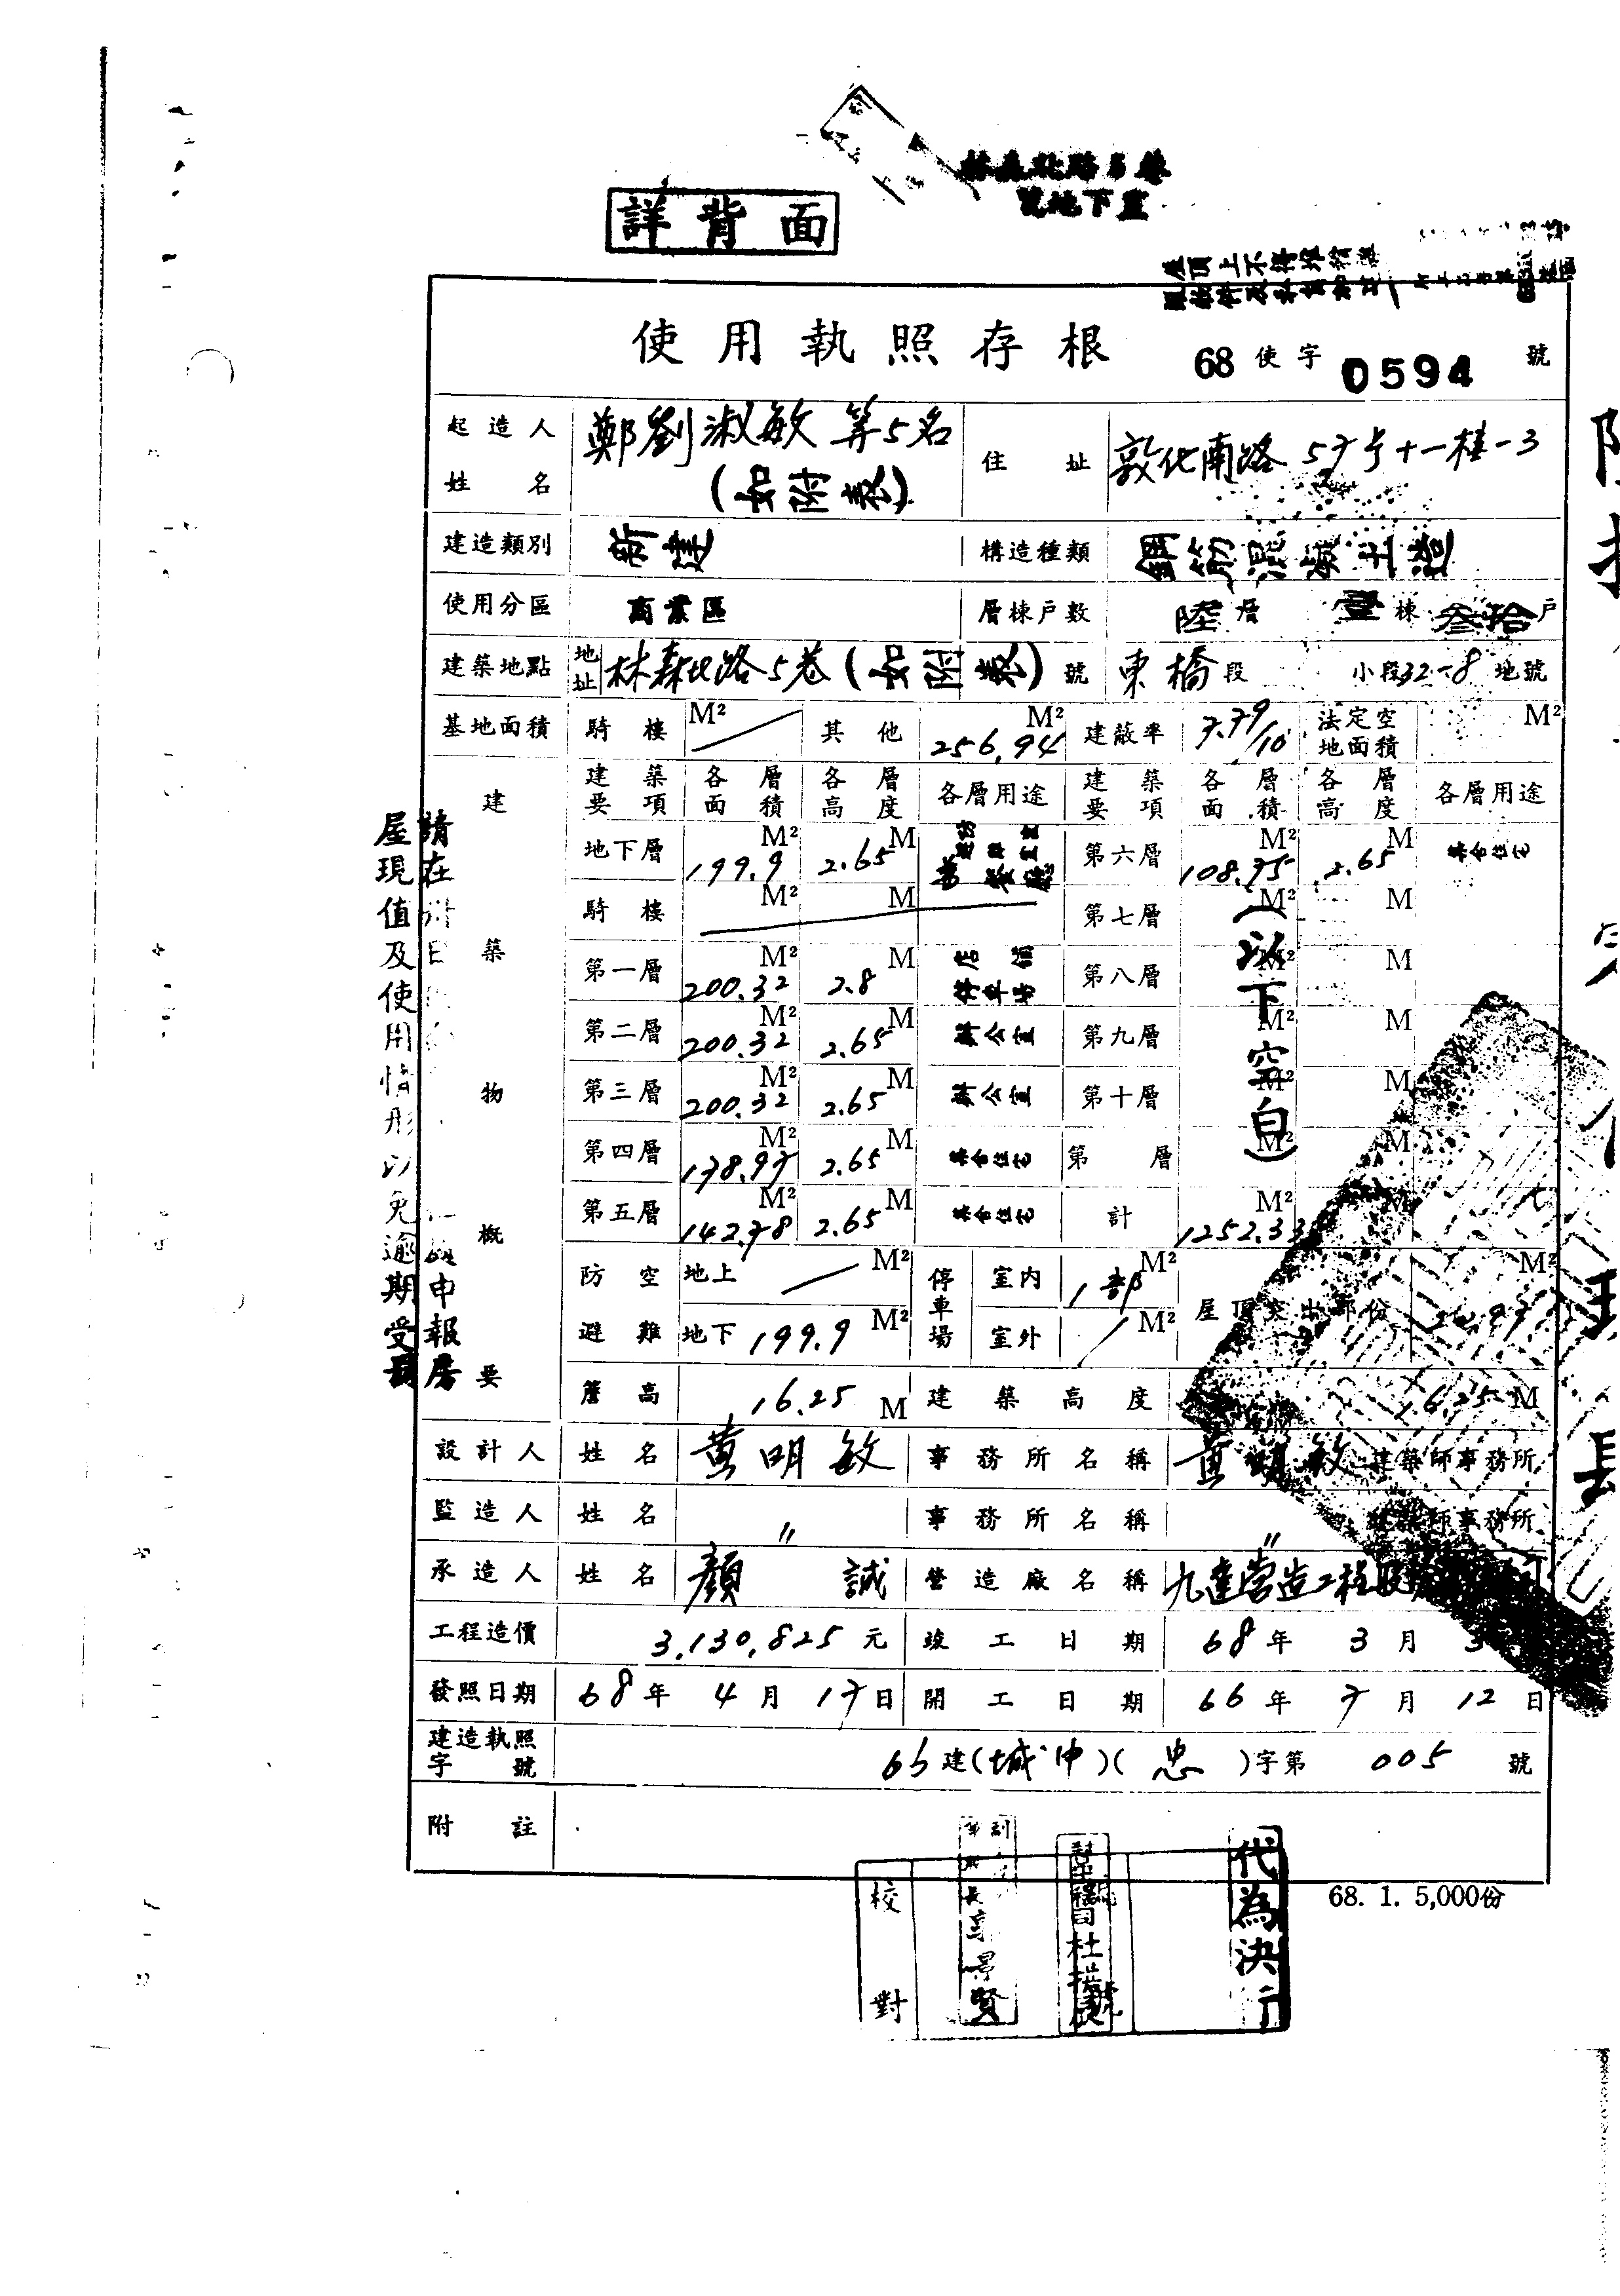 林森北路5巷
號地下室
詳背面
屋頂上不得堆積雜
使用執照存根 68使字0594號
起造人姓名 鄭劉淑敏等5名(如附表) 住址 敦化南路57号十一樓-3
建造類別 新建 構造種類 鋼筋混凝土造
使用分區 商業區 層棟戶數 陸層 壹棟 叁拾戶
建築地點 地址 林森北路5巷(如附表)號 東橋段 小段32-8地號
基地面積 騎樓 M² 其他 256.94 M² 建蔽率 7.79/10 法定空地面積 M²
建築物概要
建築要項 各層面積 各層高度 各層用途 建築要項 各層面積 各層高度 各層用途
地下層 199.9 M² 2.65 M 第六層 108.75 M² 2.65 M 集合住宅
騎樓 M² M 第七層 M² M
第一層 200.32 M² 2.8 M 店舖 停車場 第八層 M² M
第二層 200.32 M² 2.65 M 辦公室 第九層 M² M
第三層 200.32 M² 2.65 M 辦公室 第十層 M² M
第四層 178.97 M² 2.65 M 集合住宅 第 層 M² M
第五層 142.78 M² 2.65 M 集合住宅 計 1252.33 M² M
(以下空白)
防空避難 地上 M² 停車場 室內 1部 M² 屋頂突出部份 M²
地下 199.9 M² 室外 M²
簷高 16.25 M 建築高度 16.25 M
設計人 姓名 黃明敏 事務所名稱 黃明敏 建築師事務所
監造人 姓名 〃 事務所名稱 〃 建築師事務所
承造人 姓名 顏誠 營造廠名稱 九達營造工程
工程造價 3,130,825元 竣工日期 68年3月
發照日期 68年4月17日 開工日期 66年7月12日
建造執照字號 66建(城中)(忠)字第005號
附註
屋現值及使用情形以免逾期受
請在
申報房
校對
代為決行
68. 1. 5,000份